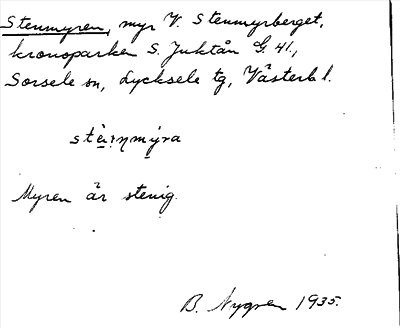 Stenmyren, myr V. Stenmyrberget,
kronoparken S. Juktån G. 41.,
Sorsele sn, Lycksele tg, Västerb l.
Myren är stenig.
B. Nygren 1935.